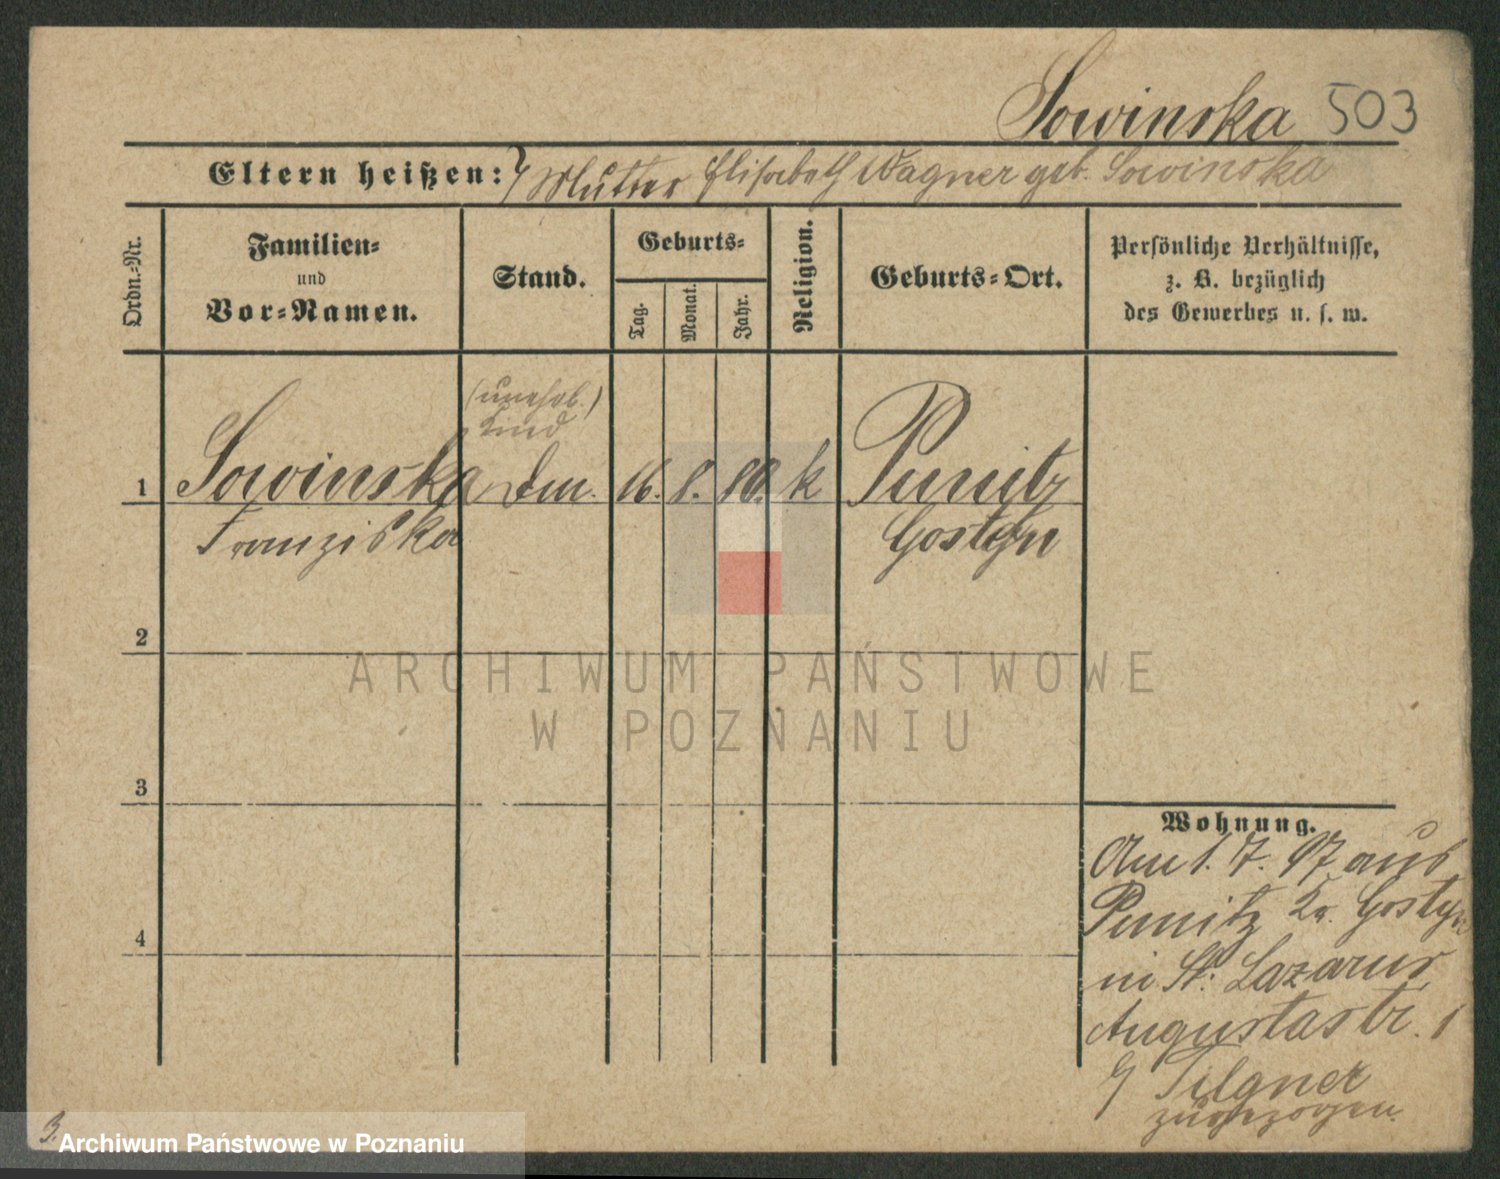 Sowinska 503
Eltern heißen: Mutter Elisabeth Wagner geb. Sowinska
Ordn.-Nr.
Familien-
und
Vor-Namen.
Stand.
Geburts-
Tag.
Monat.
Jahr.
Religion.
Geburts-Ort.
Persönliche Verhältnisse,
z. B. bezüglich
des Gewerbes u. s. w.
(unehel.)
Kind
1 Sowinska 16. 8. 80. k Punitz
Franziska Gostyn
2
3
4
Wohnung.
Am 1. 7. 97 aus
Punitz Kr. Gostyn
in St. Lazarus
Augustastr. 1
Tilgner
zugezogen.
3.
ARCHIWUM PAŃSTWOWE
W POZNANIU
Archiwum Państwowe w Poznaniu